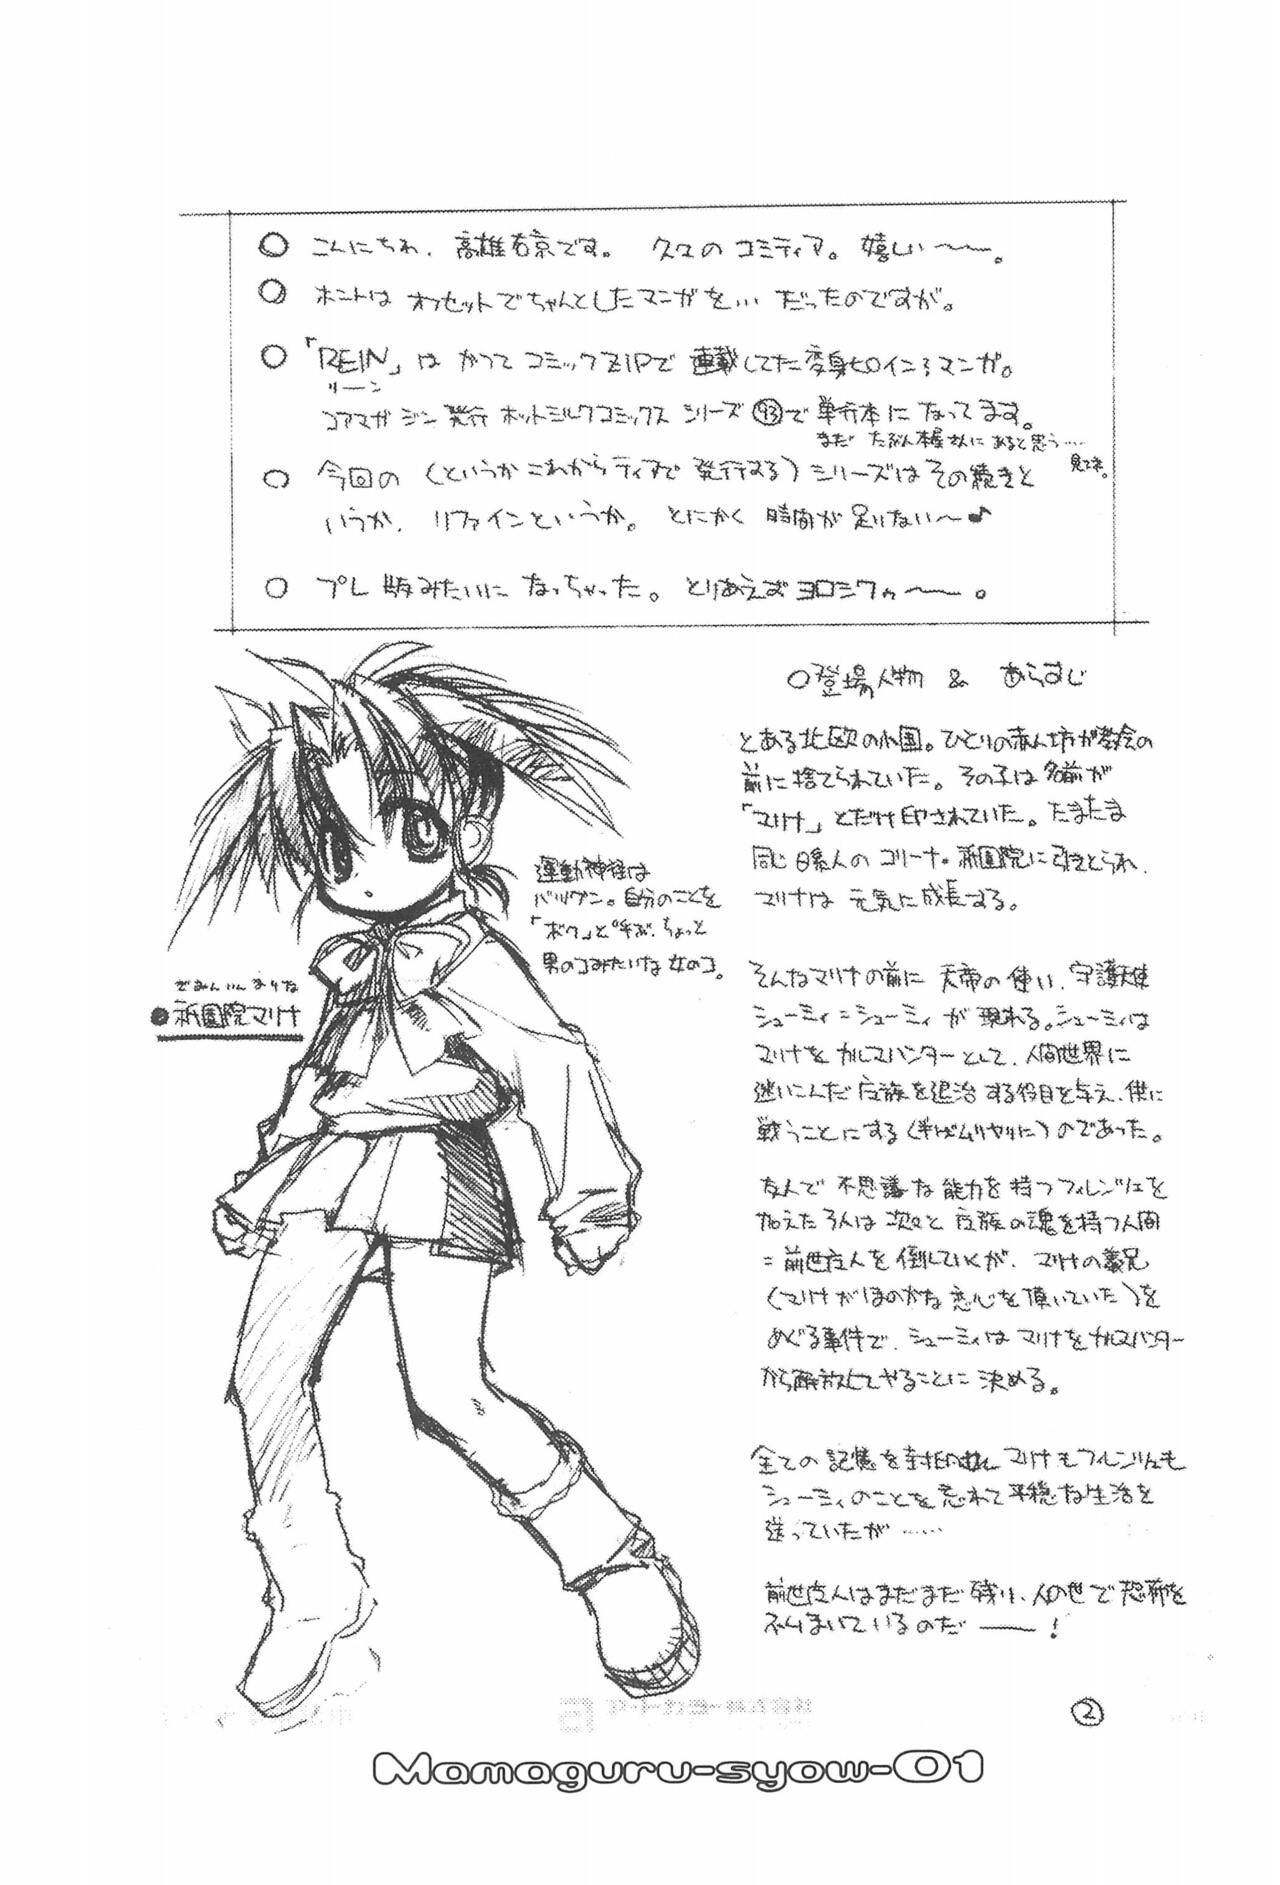 ○ こんにちわ、高雄右京です。 久々の コミティア。嬉しい〜〜。
○ ホントは オフセットでちゃんとしたマンガを… だったのですが。
○ 「REIN」は かつて コミックZIPで 連載してた変身ヒロインマンガ。
リーン
コアマガジン発行 ホットミルクコミックス シリーズ 93で 単行本に なってます。
まだ たぶん本屋さんに あると思う…
見てネ。
○ 今回の (というかこれからティアで 発行する) シリーズは その続きと
いうか、 リファインというか。 とにかく 時間が 足りない〜♪
○ プレ版みたいに なっちゃった。 とりあえず ヨロシクゥ〜〜。
○登場人物 & あらすじ
とある北欧の小国。ひとりの赤ん坊が教会の
前に捨てられていた。その子は名前が
「マリナ」とだけ印されていた。たまたま
同じ日系人の コリーナ・祇園院に引きとられ、
マリナは 元気に成長する。
そんなマリナの前に 天帝の使い、守護天使
シューミィ=シューミィ が 現れる。シューミィは
マリナを カルマハンターとして、人間世界に
迷いこんだ 魔族を退治 する役目を与え、供に
戦うことにする(半ばムリヤリに)のであった。
友人で 不思議な 能力を 持つフィレンツェを
加えた3人は 次々と 魔族の魂を持つ人間
=前世魔人を 倒していくが、 マリナの義兄
(マリナがほのかな 恋心を 頂いていた)を
めぐる事件で、シューミィは マリナをカルマハンター
から解放してやることに 決める。
全ての 記憶を 封印され マリナもフィレンツェも
シューミィのことを 忘れて 平穏な生活を
送っていたが……
前世魔人はまだまだ 残り、人の世で 恐怖を
ふりまいているのだ――!
運動神経は
バツグン。自分のことを
「ボク」と呼ぶ、ちょっと
男のコみたいな 女のコ。
ぎおんいん まりな
●祇園院マリナ
アートカラー株式会社
②
Mamaguru-syow-01